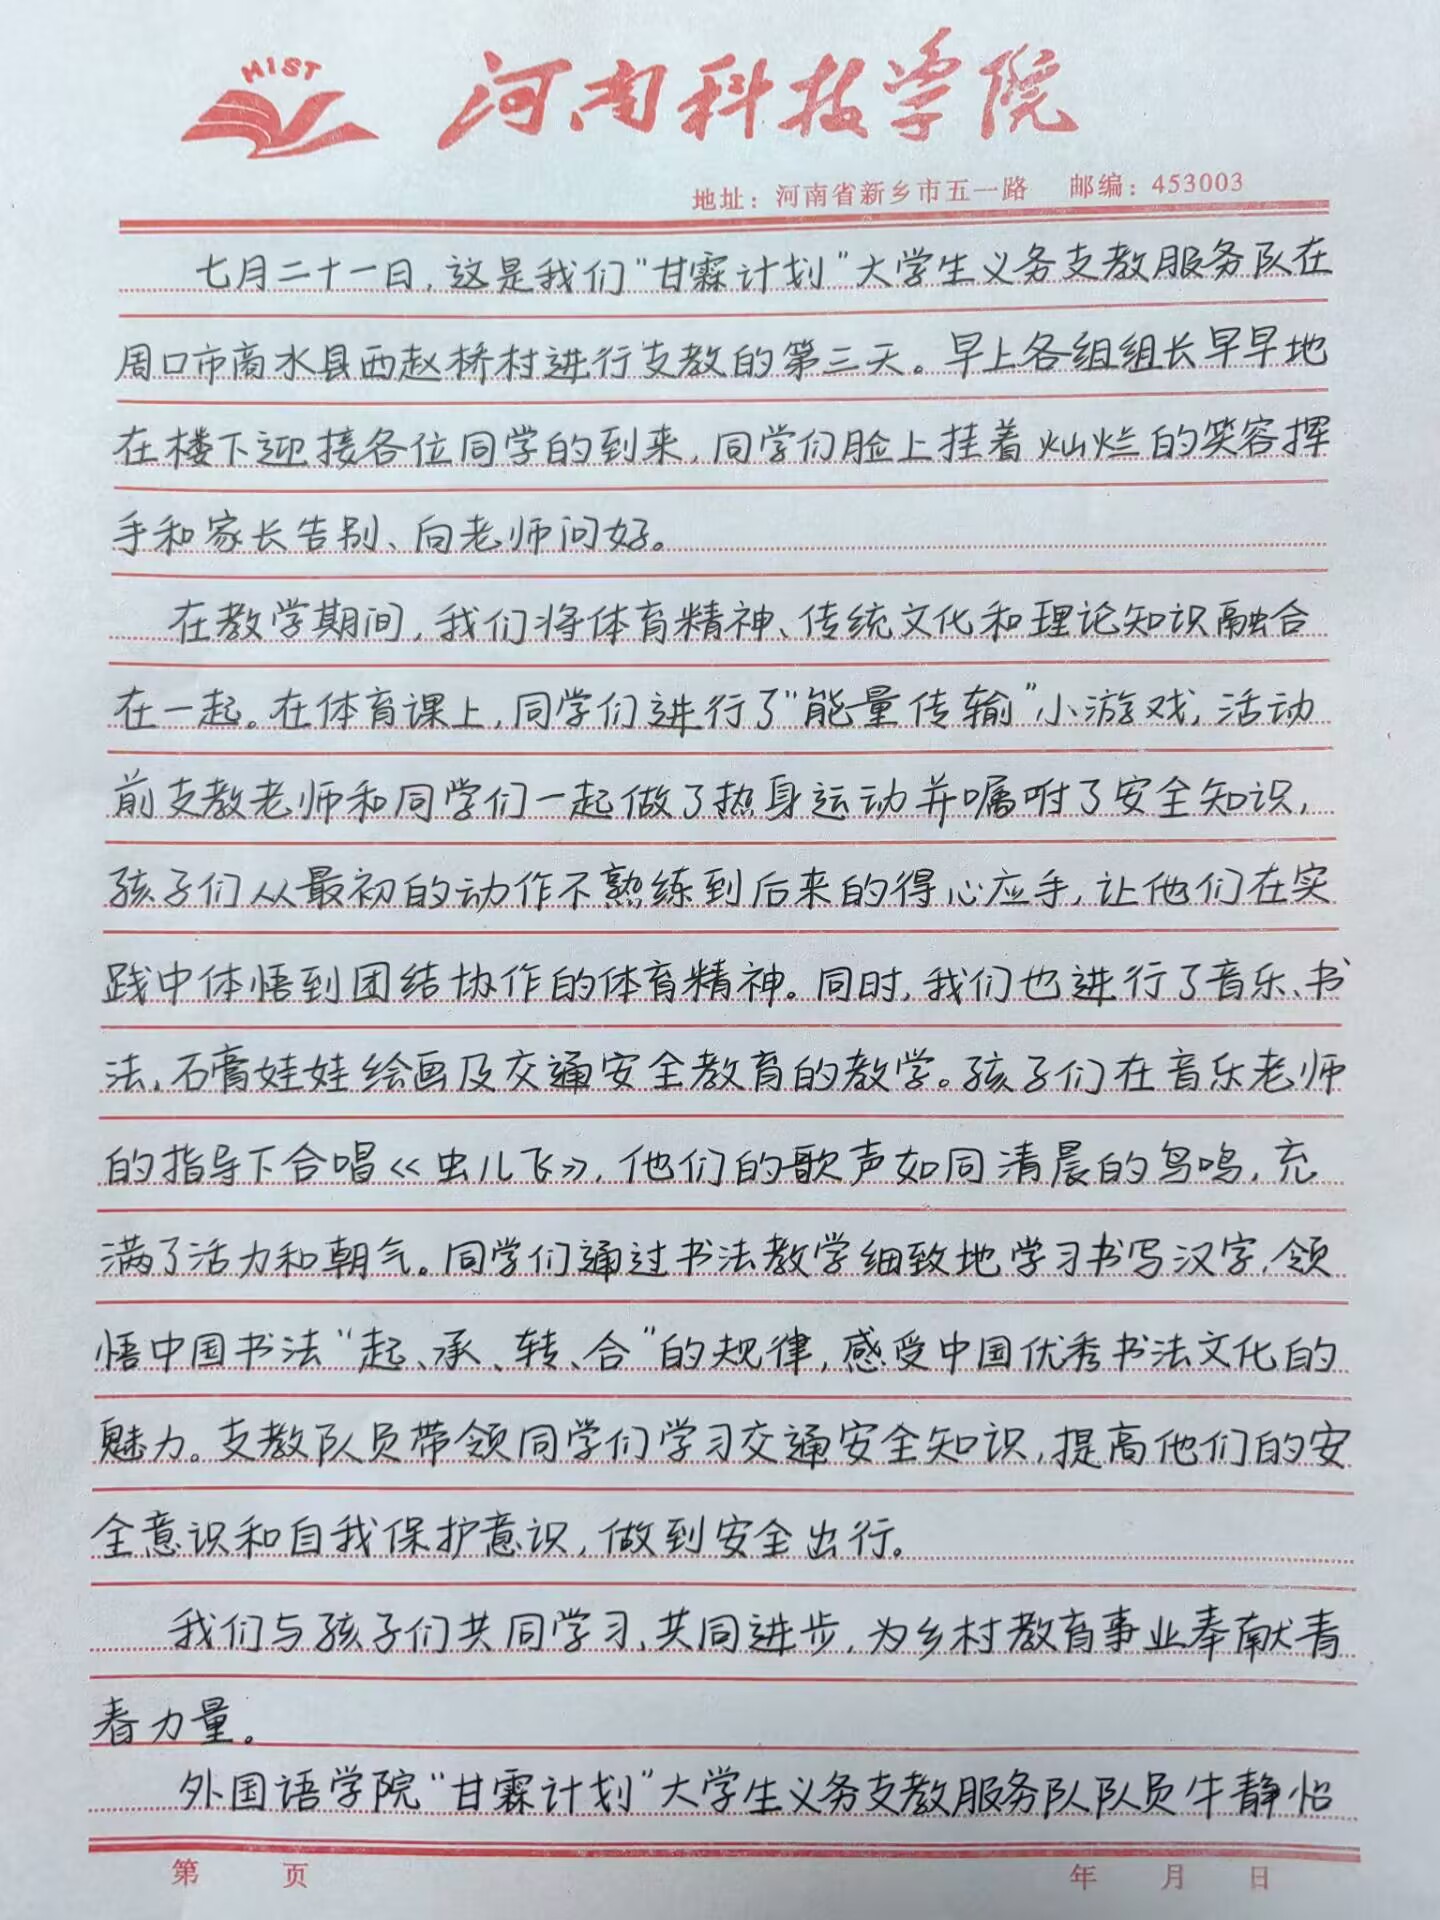 HIST
河南科技学院
地址：河南省新乡市五一路 邮编：453003
七月二十一日，这是我们“甘霖计划”大学生义务支教服务队在
周口市商水县西赵桥村进行支教的第三天。早上各组组长早早地
在楼下迎接各位同学的到来，同学们脸上挂着灿烂的笑容挥
手和家长告别、向老师问好。
在教学期间，我们将体育精神、传统文化和理论知识融合
在一起。在体育课上，同学们进行了“能量传输”小游戏，活动
前支教老师和同学们一起做了热身运动并嘱咐了安全知识，
孩子们从最初的动作不熟练到后来的得心应手，让他们在实
践中体悟到团结协作的体育精神。同时，我们也进行了音乐、书
法、石膏娃娃绘画及交通安全教育的教学。孩子们在音乐老师
的指导下合唱《虫儿飞》，他们的歌声如同清晨的鸟鸣，充
满了活力和朝气。同学们通过书法教学细致地学习书写汉字，领
悟中国书法“起、承、转、合”的规律，感受中国优秀书法文化的
魅力。支教队员带领同学们学习交通安全知识，提高他们的安
全意识和自我保护意识，做到安全出行。
我们与孩子们共同学习、共同进步，为乡村教育事业奉献青
春力量。
外国语学院“甘霖计划”大学生义务支教服务队队员牛静怡
第 页 年 月 日